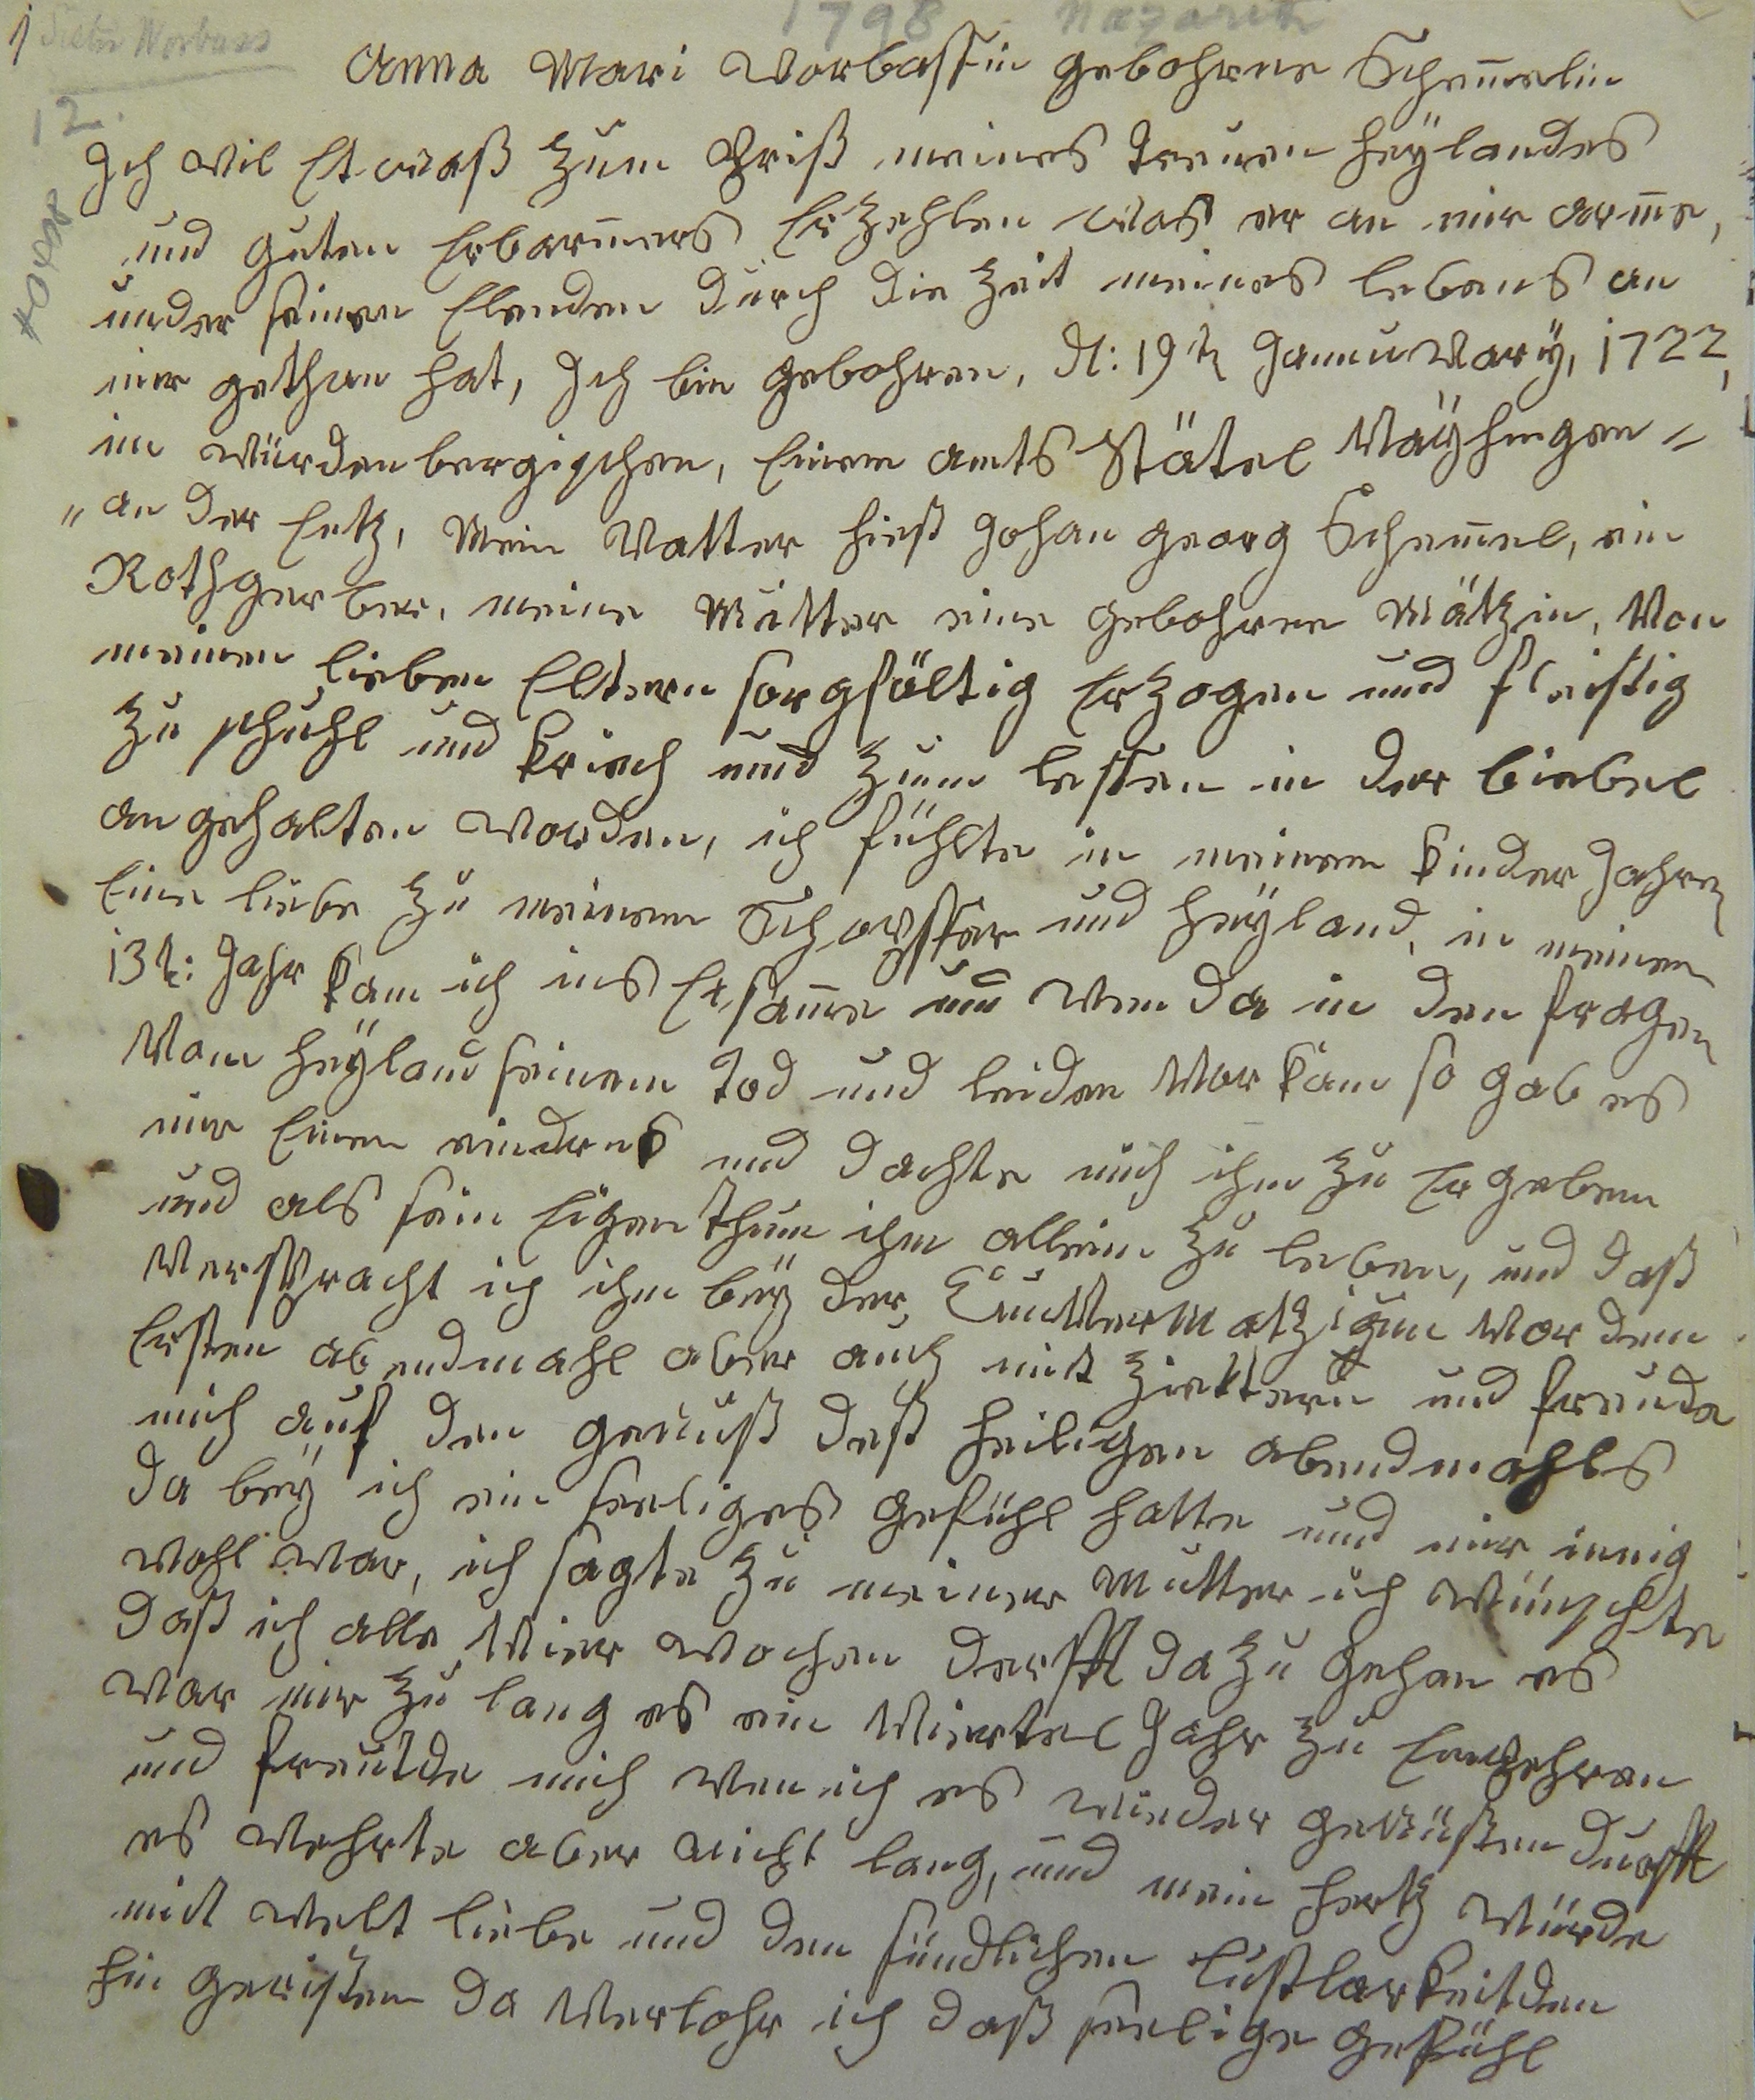 1798 Nazareth
1
12.
Anna Mari Worbassin gebohrne Schem̅elin
Ich wil Etwaß zum Priß meines treuen Heÿlandes
und guten Erbarm̅ers Erzehlen was er an mir arm̅e,
under seinen Elenden durch die Zeit meines lebens an
mir gethan hat, Ich bin gebohren, d: 19t Jannuwarÿ, 1722,
im Würdenbergischen, Einem amts Stätel Vaÿhingen =
" an der Entz, Mein Vatter hieß Johan Georg Schem̅el, ein
Rothgerber, meine Mutter eine gebohrne Mätzin, Von
meinen lieben Eltern sorgfältig Erzogen und fleisig
zu schuhl und Kirich und zum lessen in der biebel
angehalten worden, ich fühlte in meinem Kinder Jahren
Eine liebe zu meinem Schopffer und Heÿland, in meinem
13t: Jahr kam ich ins Exsam̅e und wen da in den fragen
Vom Heÿland seinem Tod und leiden Vor kam so gab es
mir Einen eindruk und dachte mich ihm zu Ergeben
und als sein Eigenthum ihm allein zu leben, und daß
Verspracht ich ihm beÿ der Cunffermatzigun Vor dem
Ersten abendmahl aber auch mit Zittern und freude
mich auf den genuß deß heiligen abendmahls
da beÿ ich ein seeliges gefühl hatte und mir innig
wohl war, ich sagte zu meiner Mutter ich wünschte
daß ich alle Vier wochen derfft da zu gehen es
war mir zu lang es ein Viertel Jahr zu Entpehren
und freutde mich wen ich es wieder genüßen durfft
es wehrte aber nicht lang, und mein Hertz würde
mit welt liebe und den sündlichen Lustbarkeitden
hin gerissen da Verlohr ich daß seelige gefühl